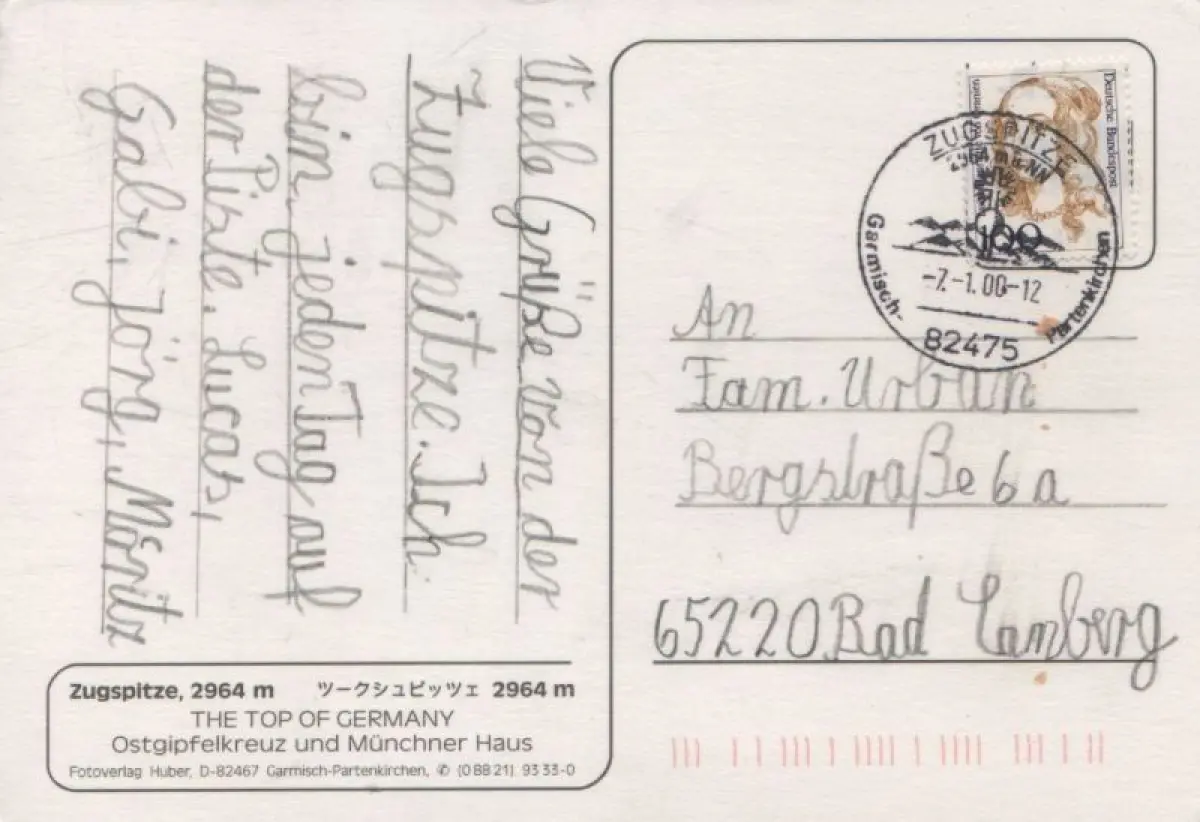 Viele Grüße von der
Zugspitze. Ich
bin jeden Tag auf
der Piste. Lucas,
Gabi, Jörg, Moritz
Zugspitze, 2964 m ツークシュピッツェ 2964 m
THE TOP OF GERMANY
Ostgipfelkreuz und Münchner Haus
Fotoverlag Huber, D-82467 Garmisch-Partenkirchen, ✆ (0 88 21) 93 33-0
Deutsche Bundespost
ZUGSPITZE
2964 m ü. NN
100
Garmisch-Partenkirchen
-7.-1.00-12
82475
An
Fam. Urban
Bergstraße 6 a
65220 Bad Camberg